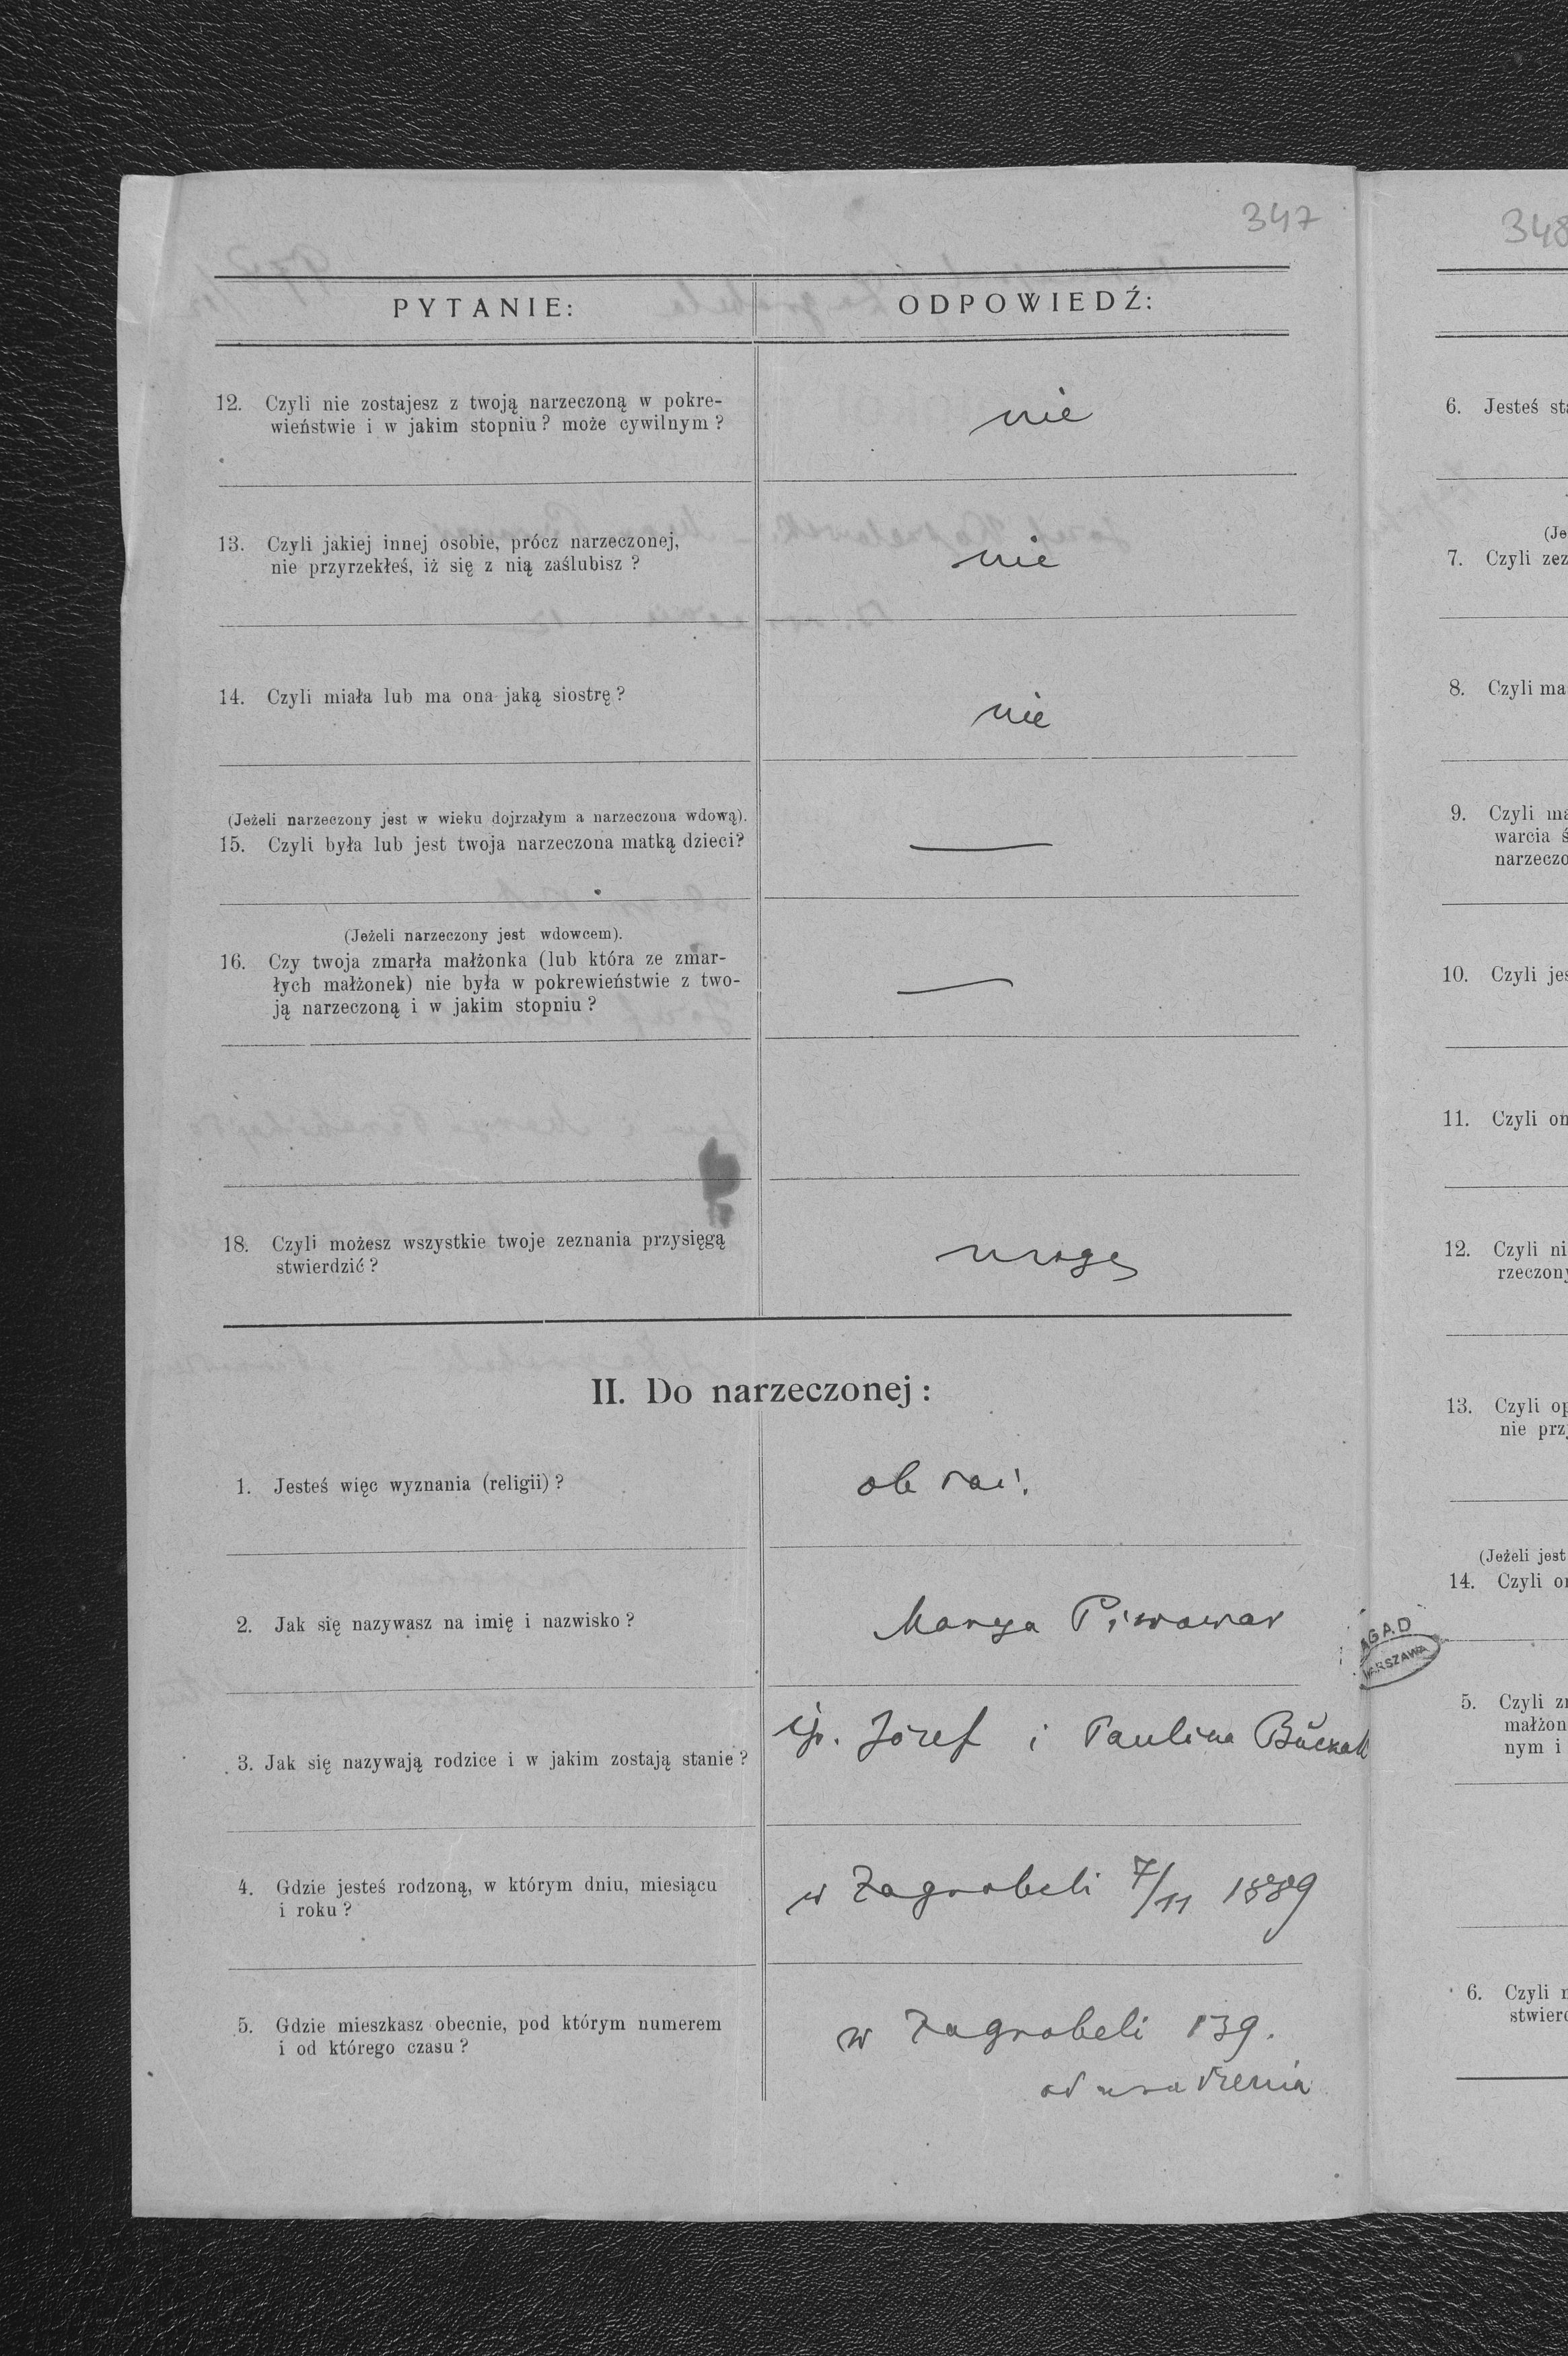 347
PYTANIE:
ODPOWIEDŹ:
12. Czyli nie zostajesz z twoją narzeczoną w pokre-
wieństwie i w jakim stopniu? może cywilnym?
nie
13. Czyli jakiej innej osobie, prócz narzeczonej,
nie przyrzekłeś, iż się z nią zaślubisz?
nie
14. Czyli miała lub ma ona jaką siostrę?
nie
(Jeżeli narzeczony jest w wieku dojrzałym a narzeczona wdową).
15. Czyli była lub jest twoja narzeczona matką dzieci?
(Jeżeli narzeczony jest wdowcem).
16. Czy twoja zmarła małżonka (lub która ze zmar-
łych małżonek) nie była w pokrewieństwie z two-
ją narzeczoną i w jakim stopniu?
18. Czyli możesz wszystkie twoje zeznania przysięgą
stwierdzić?
mogę
II. Do narzeczonej:
1. Jesteś więc wyznania (religii)?
2. Jak się nazywasz na imię i nazwisko?
Marya Piwowar
3. Jak się nazywają rodzice i w jakim zostają stanie?
Józef i Paulina
4. Gdzie jesteś rodzoną, w którym dniu, miesiącu
i roku?
w Zagrobeli 7/11 1889
5. Gdzie mieszkasz obecnie, pod którym numerem
i od którego czasu?
w Zagrobeli 139.
od urodzenia
348
6. Jesteś st
(Je
7. Czyli zez
8. Czyli ma
9. Czyli ma
warcia ś
narzeczo
10. Czyli jes
11. Czyli on
12. Czyli ni
rzeczony
13. Czyli op
nie przy
(Jeżeli jest
14. Czyli or
AGAD
WARSZAWA
5. Czyli zn
małżon
nym i
6. Czyli m
stwierd